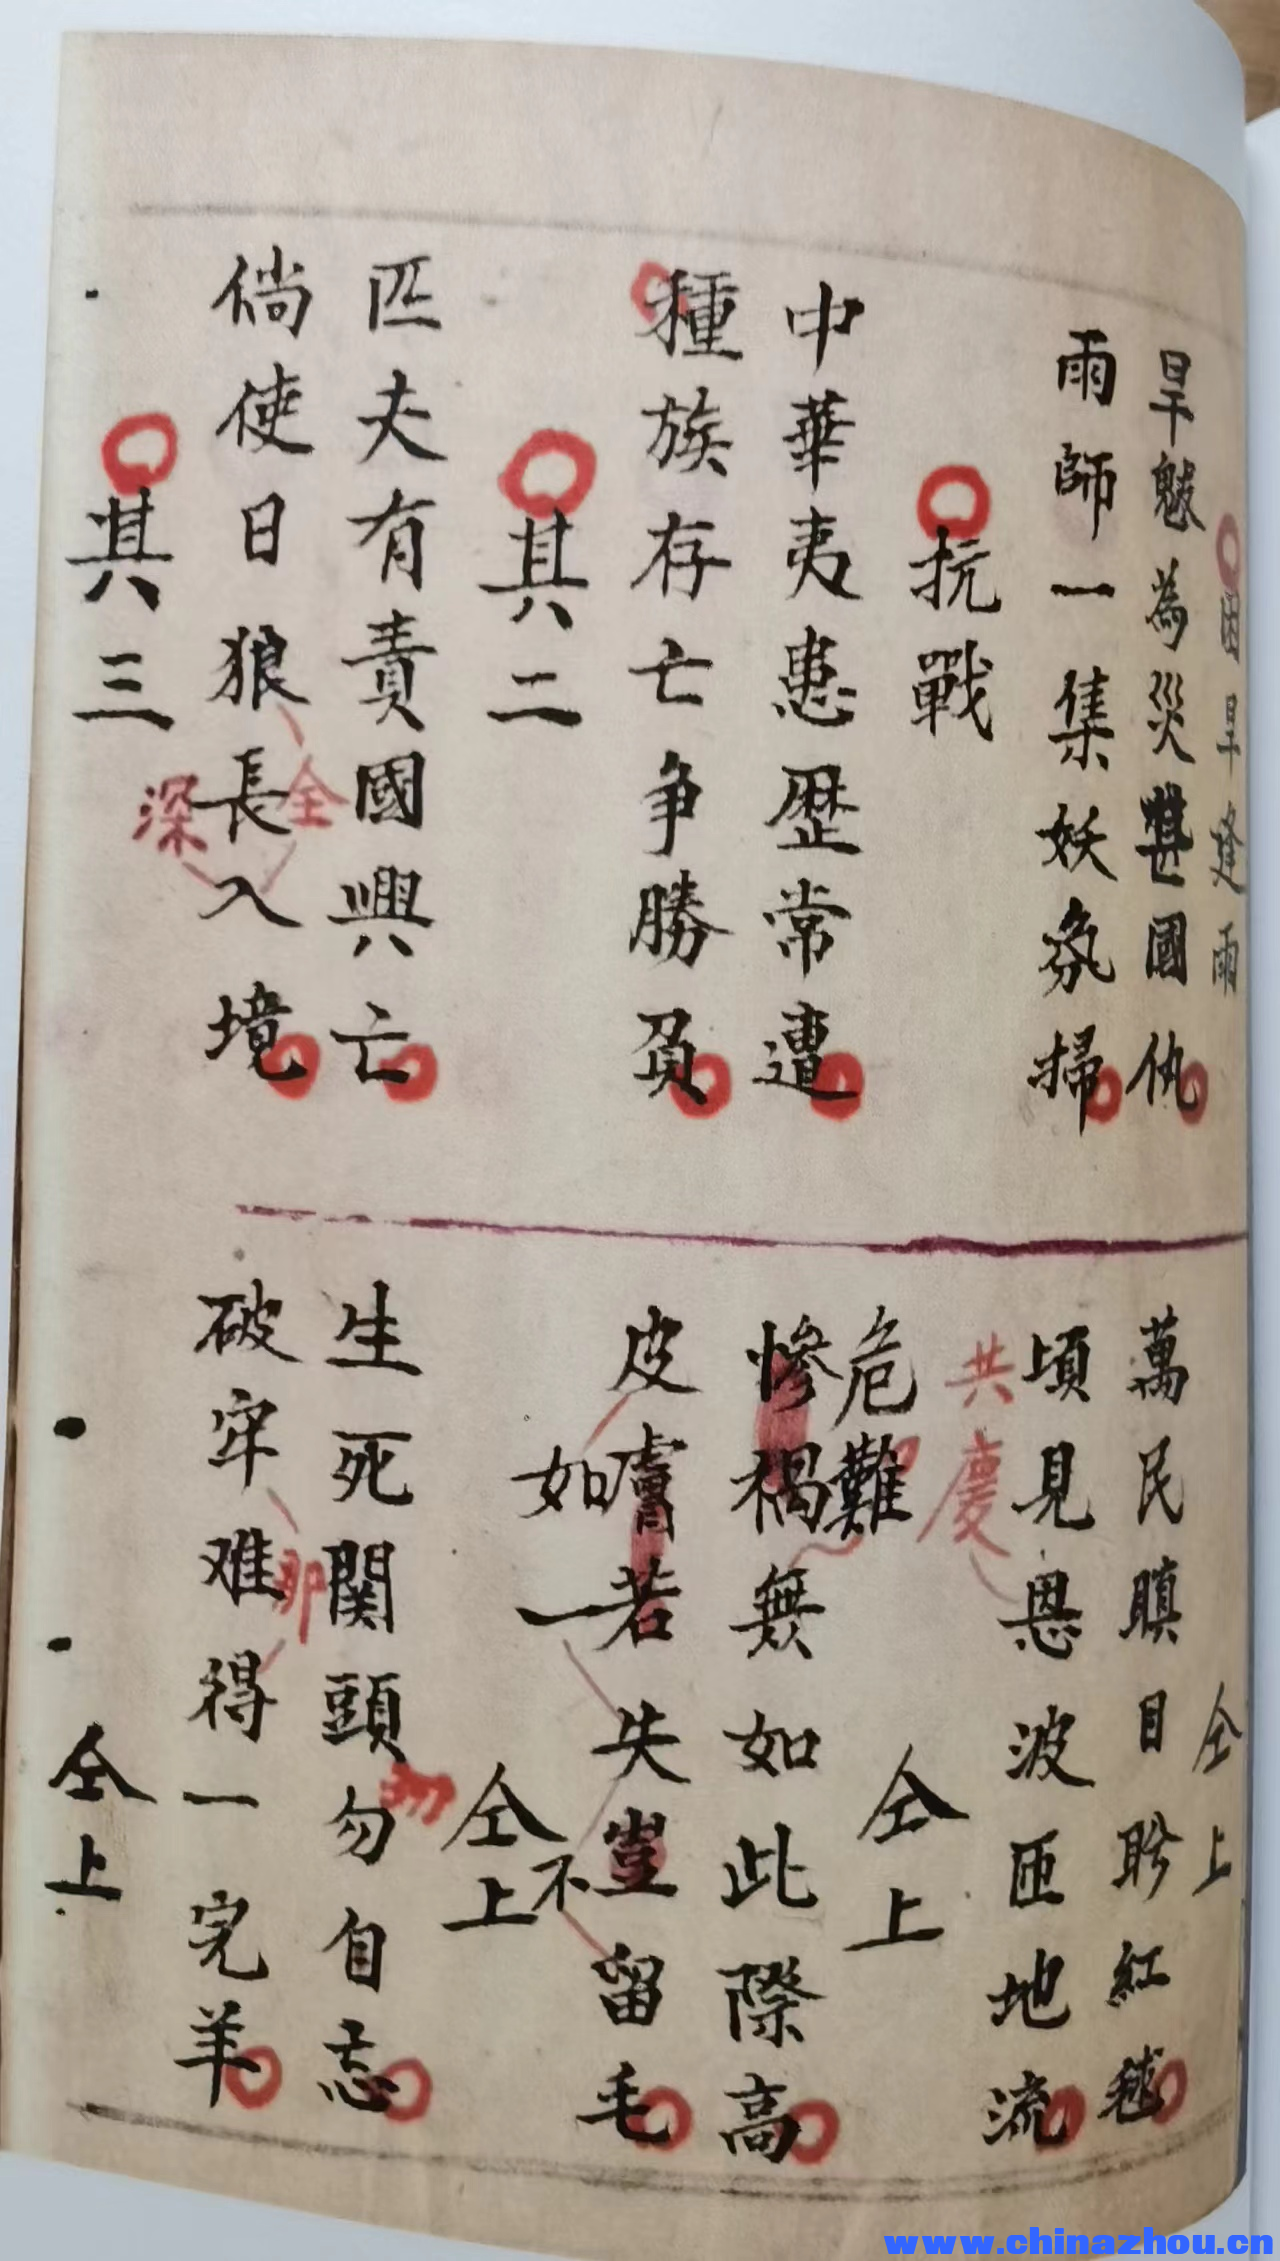 旱逢雨 仝上
旱魃為災甚國仇 萬民瞋目盼紅毬
雨師一集妖氛掃 頃見恩波匝地流
共慶
抗戰 仝上
危難
中華夷患歷常遭 慘禍無如此際高
種族存亡爭勝負 皮膚若失豈留毛
如一
不
其二 仝上
匹夫有責國興亡 生死関頭勿自忘
全
那
倘使日狼長入境 破牢难得一完羊
深
其三 仝上
www.chinazhou.cn